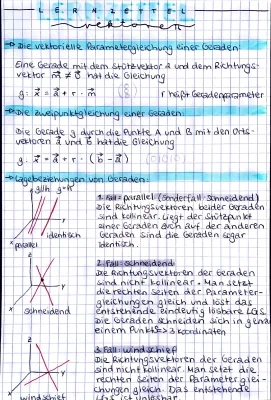 LERNZETTEL
vektoren
Die vektorielle Parametergleichung einer Geraden:
Eine Gerade mit dem Stützvektor a und dem Richtungs-
vektor m ≠ 0 hat die Gleichung
g: x = a + r · m
r heißt Geradenparameter
Die Zweipunktgleichung einer Geraden:
Die Gerade g durch die Punkte A und B mit den Orts-
vektoren a und b hat die Gleichung
g: x = a + r · (b - a)
Lagebeziehungen von Geraden:
g||h g=h
identisch
parallel
1. Fall = parallel (Sonderfall: Schneidend)
Die Richtungsvektoren beider Geraden
sind kollinear. Liegt der Stützpunkt
einer Geraden auch auf der anderen
Geraden sind die Geraden sogar
identisch.
schneidend
2. Fall = schneidend
Die Richtungsvektoren der Geraden
sind nicht kollinear. Man setzt
die rechten Seiten der Parameter-
gleichungen gleich und löst das
entstehende eindeutig lösbare LGS.
Die Geraden schneiden sich in genau
einem Punkt S => 3 Koordinaten
windschief
3. Fall = windschief
Die Richtungsvektoren der Geraden
sind nicht kollinear. Man setzt die
rechten Seiten der Parametergleich-
ungen gleich. Das entstehende
LGS ist unlösbar.